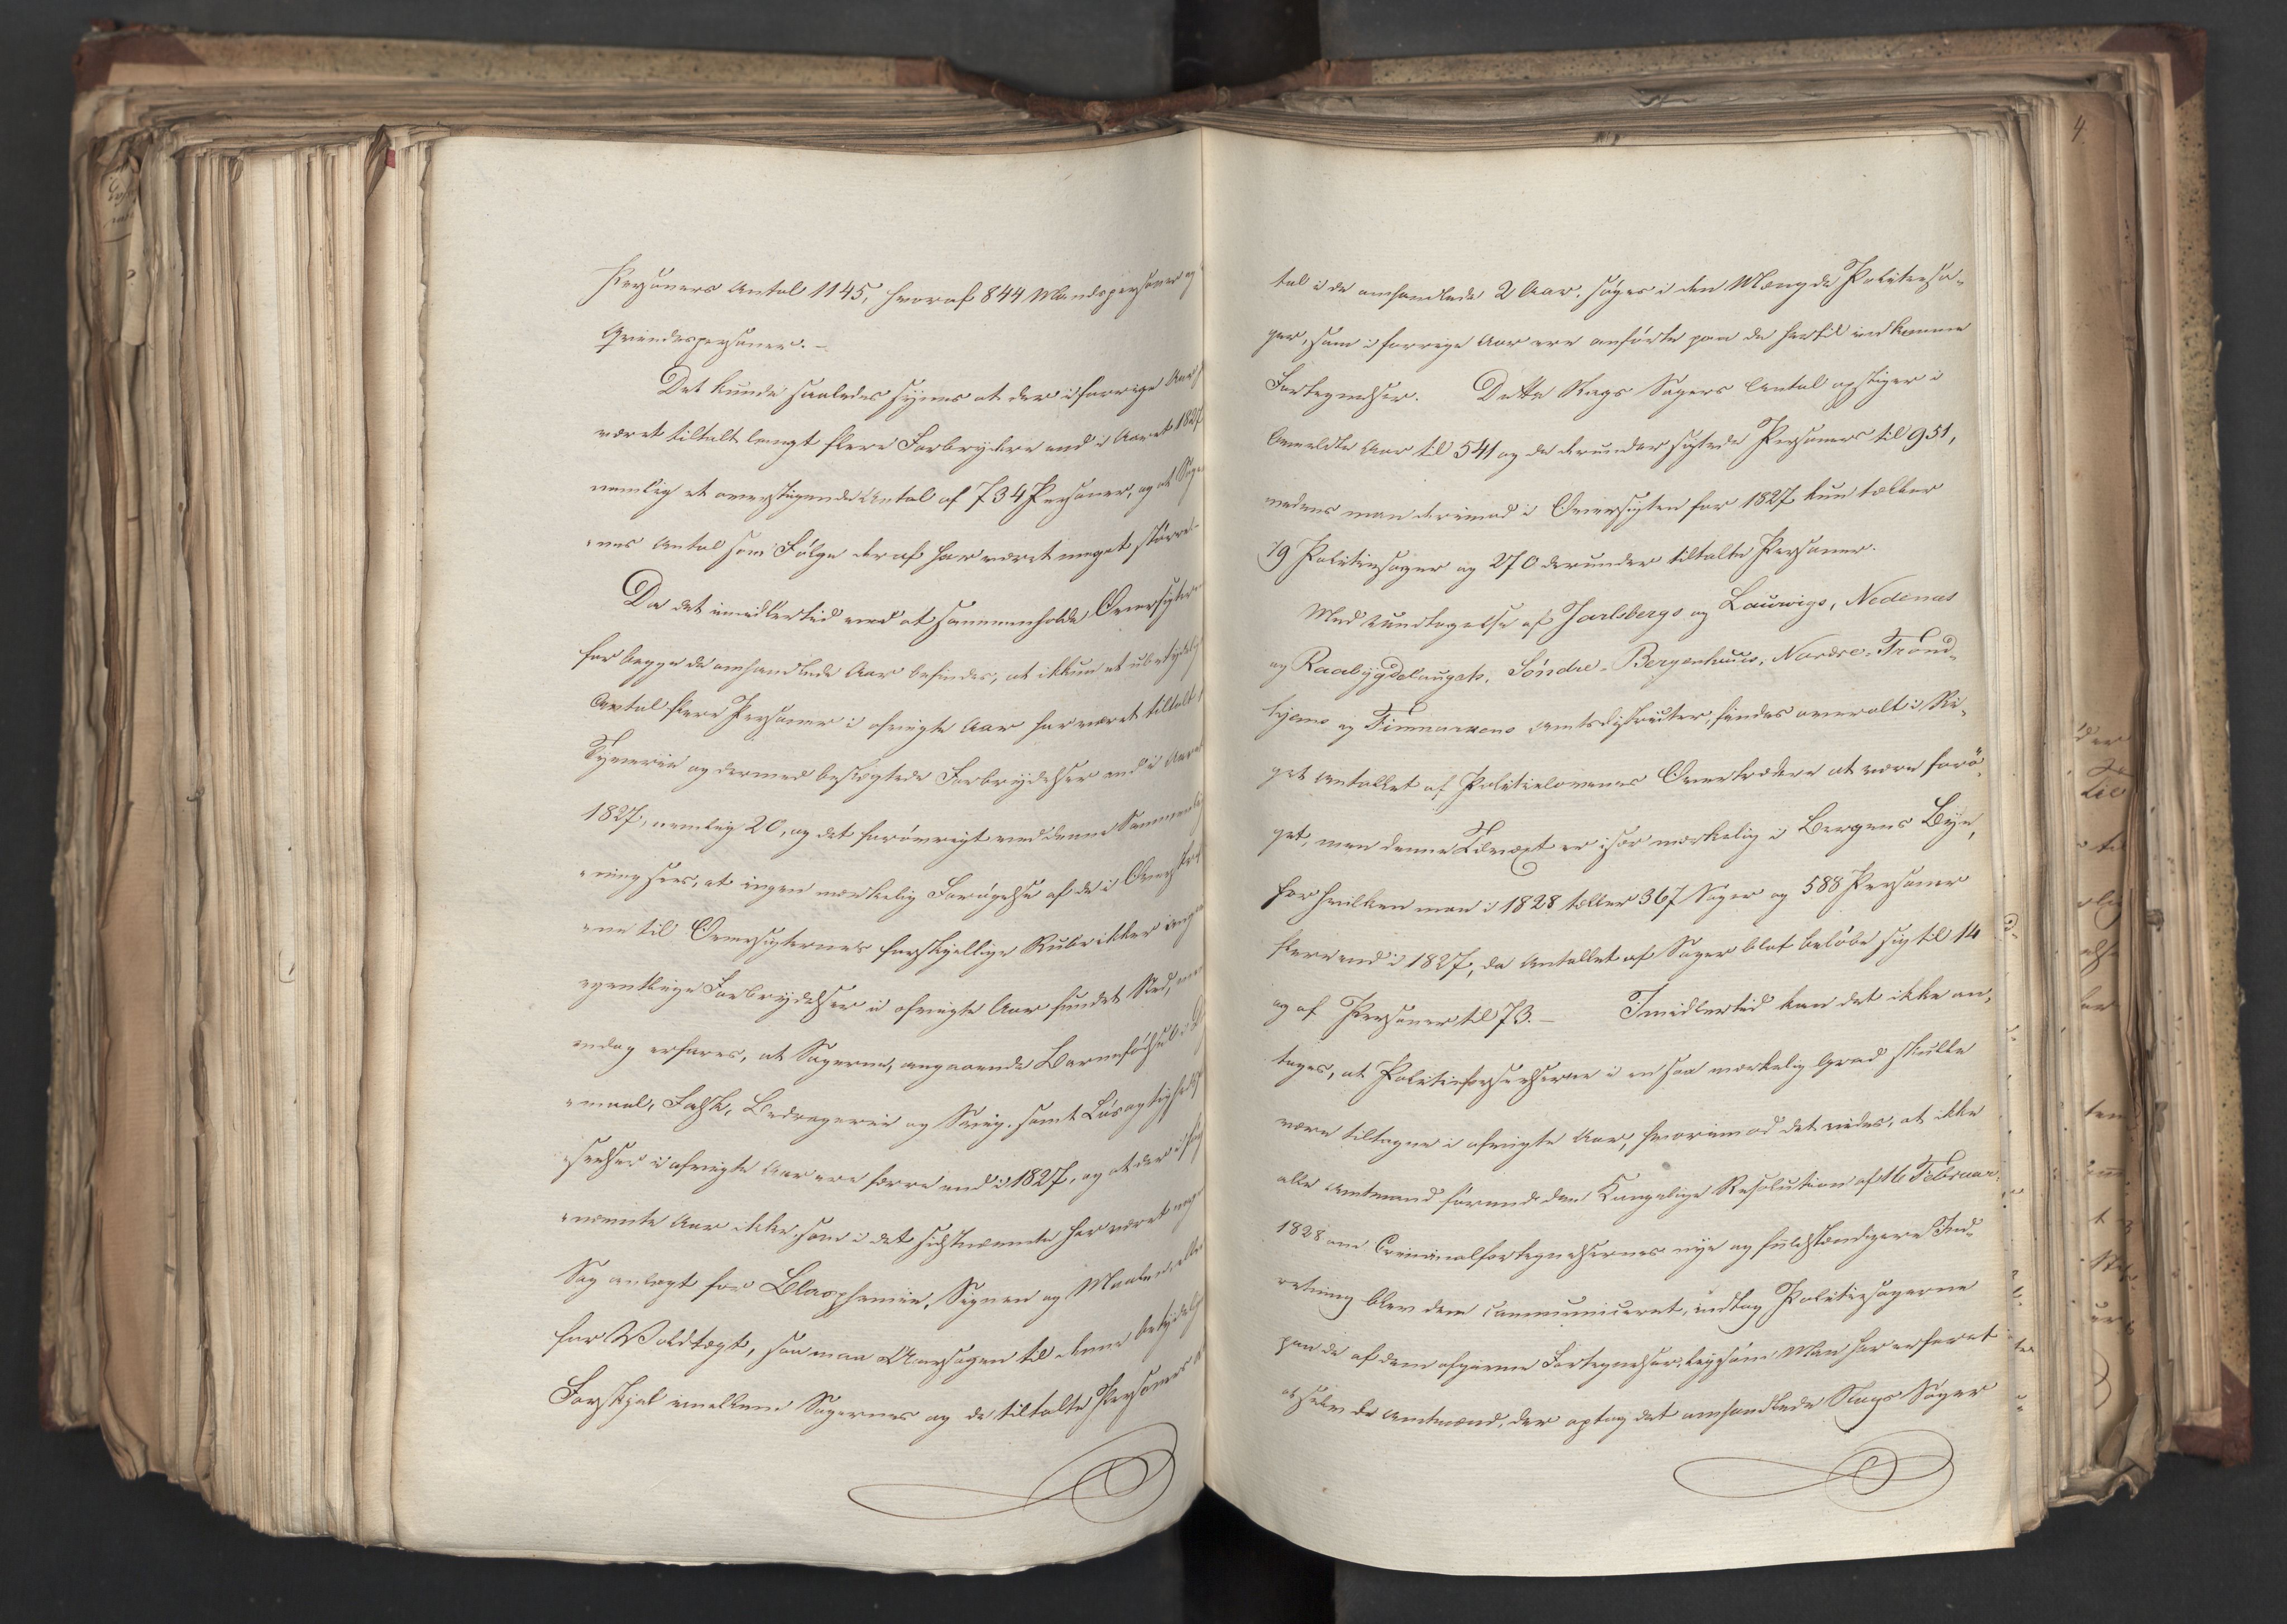 Personers Antal 1145, hvoraf 844 Mandspersoner og
Qvindespersoner. –
Det kunde saaledes synes at der i forrige Aar
været tiltalt langt flere Forbrydere end i Aaret 1827
nemlig et overstigende Antal af 734 Personer, og at Sager
nes Antal som Følge deraf har været meget større.
Da det imidlertid ved at sammenholde Oversigter
for begge de omhandlede Aar befindes, at ikkun et ubetydelig
Antal flere Personer i afvigte Aar har været tiltalt
Tyverie og dermed beslægtede Forbrydelser end i Aaret
1827, nemlig 20, og det forøvrigt ved denne Sammenlig
ning sees, at ingen mærkelig Forøgelse af de i Overskrif
ene til Oversigternes forskjellige Rubrikker
egentlige Forbrydelser i afvigte Aar fundet Sted, men
endog erfares, at Sagerne, angaaende Barnefødsel i D
maal, Falsk, Bedragerie og Svig, samt Løsagtigheds
seelser i afvigte Aar ere færre end i 1827, og at der i først
nævnte Aar ikke, som i det sidstnævnte har været
Sag anlagt for Blasphemie, Signen og Maalen eller
for Voldtægt, saa maa Aarsagen til denne betydelige
Forskjel imellem Sagernes og de tiltalte Personers
4.
tal i de omhandlede 2 Aar, søges i den Mængde Politiesa-
ger, som i forrige Aar ere anførte paa de hertil indkomne
Fortegnelser. Dette Slags Sagers Antal opstiger i
bemeldte Aar til 541 og de derunder sigtede Personers til 951,
medens man derimod i Oversigten for 1827 kun tæller
79 Politiesager og 270 derunder tiltalte Personer.
Med Undtagelse af Jarlsbergs og Laurvigs, Nedenæs
og Raabygdelaugets, Söndre-Bergenhuus, Nordre-Trond-
hjems og Finmarkens Amtsdistricter, findes overalt i Ri-
get Antallet af Politielovenes Overtrædere at være forø-
get, men denne Tilvæxt er især mærkelig i Bergens Bye,
for hvilken man i 1828 tæller 367 Sager og 588 Personer
flere end i 1827, da Antallet af Sager blot beløbe sig til 14
og af Personer til 73. – Imidlertid kan det ikke an-
tages, at Politieforseelserne i en saa mærkelig Grad skulde
være tiltagne i afvigte Aar, hvorimod det vides, at ikke
alle Amtmænd førend den Kongelige Resolution af 16 Februar
1828 om Criminalfortegnelsernes nye og fuldstændigere Ind-
retning blev dem communiceret, indtog Politiesagerne
paa de af dem afgivne Fortegnelser, ligesom Man har erfaret
at selv de Amtmænd, der optog det omhandlede Slags Sager